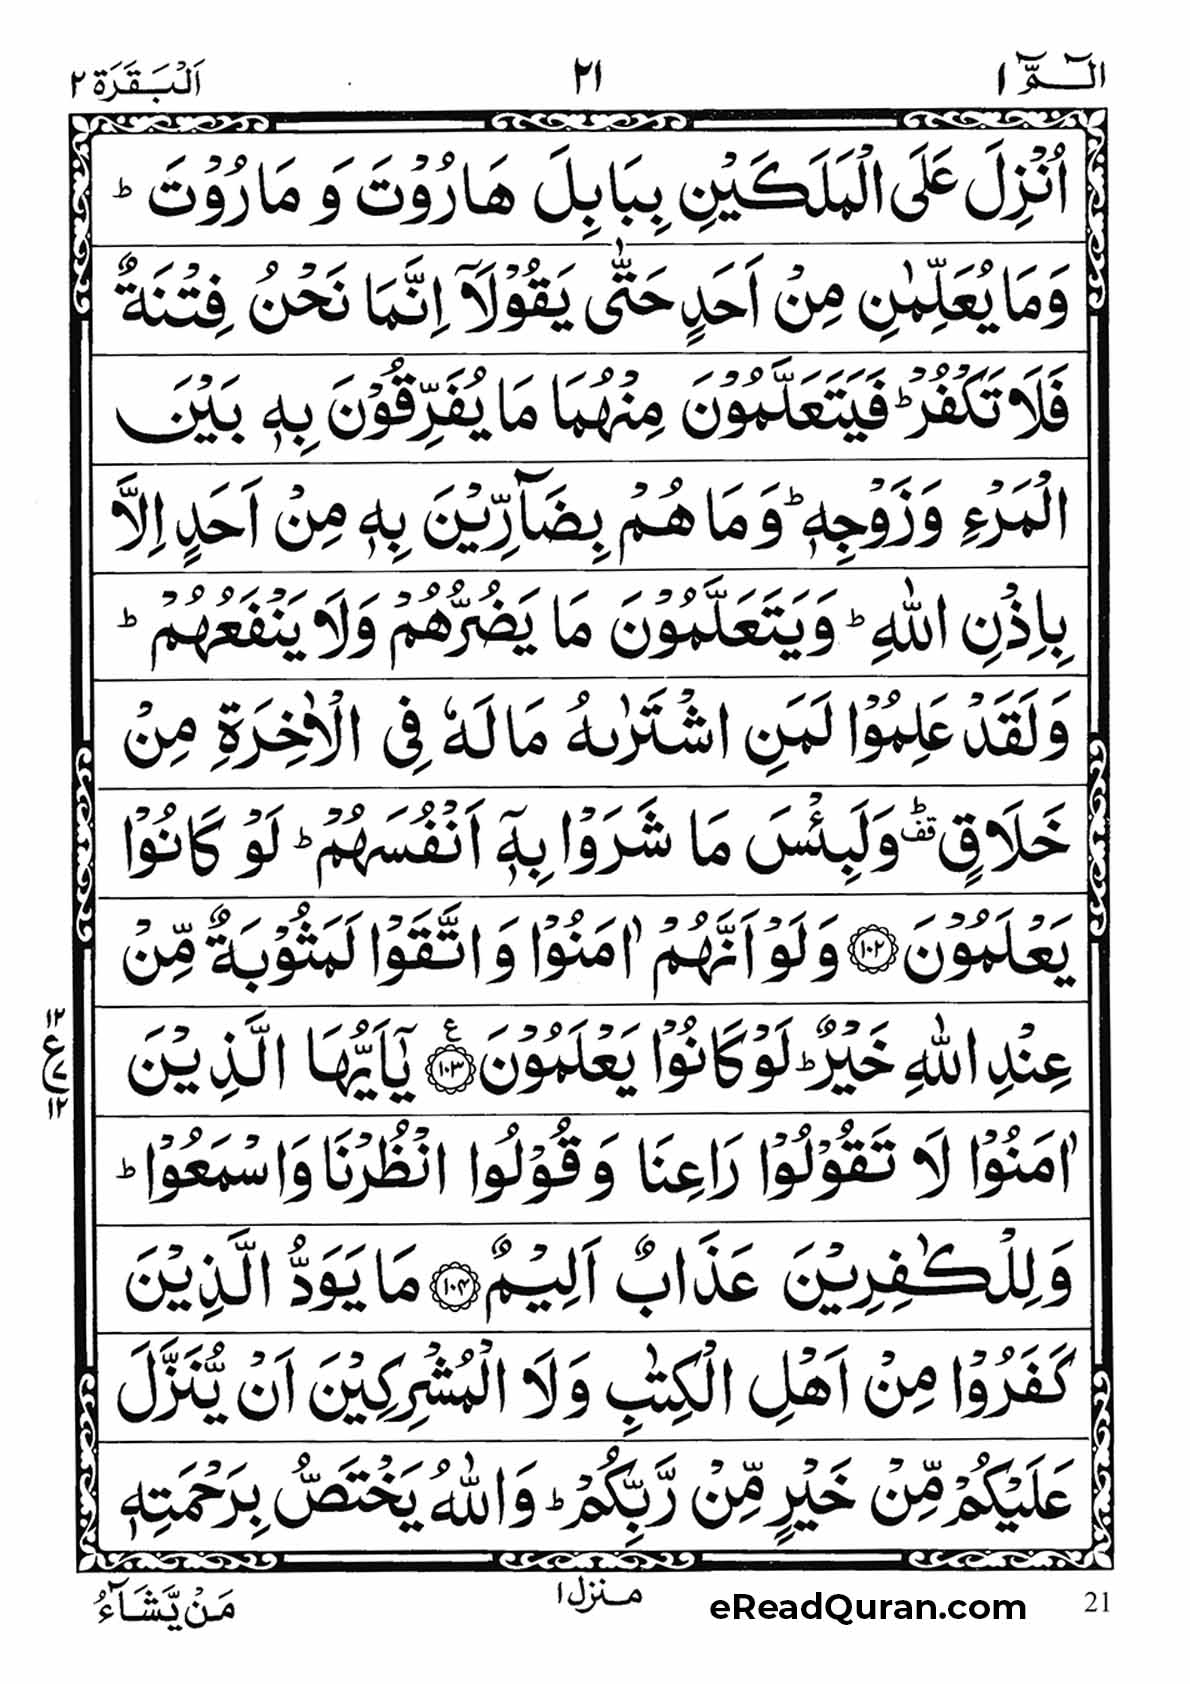 الٓمّٓ ۱ ۲۱ اَلْبَقَرَة ۲
اُنْزِلَ عَلَى الْمَلَكَيْنِ بِبَابِلَ هَارُوْتَ وَ مَارُوْتَ ؕ
وَمَا يُعَلِّمٰنِ مِنْ اَحَدٍ حَتّٰى يَقُوْلَاۤ اِنَّمَا نَحْنُ فِتْنَةٌ
فَلَا تَكْفُرْ ؕ فَيَتَعَلَّمُوْنَ مِنْهُمَا مَا يُفَرِّقُوْنَ بِهٖ بَيْنَ
الْمَرْءِ وَزَوْجِهٖ ؕ وَمَا هُمْ بِضَآرِّيْنَ بِهٖ مِنْ اَحَدٍ اِلَّا
بِاِذْنِ اللّٰهِ ؕ وَيَتَعَلَّمُوْنَ مَا يَضُرُّهُمْ وَلَا يَنْفَعُهُمْ ؕ
وَلَقَدْ عَلِمُوْا لَمَنِ اشْتَرٰىهُ مَا لَهٗ فِى الْاٰخِرَةِ مِنْ
خَلَاقٍ ؕ قف وَلَبِئْسَ مَا شَرَوْا بِهٖۤ اَنْفُسَهُمْ ؕ لَوْ كَانُوْا
يَعْلَمُوْنَ ﴿۱۰۲﴾ وَلَوْ اَنَّهُمْ اٰمَنُوْا وَاتَّقَوْا لَمَثُوْبَةٌ مِّنْ
عِنْدِ اللّٰهِ خَيْرٌ ؕ لَوْ كَانُوْا يَعْلَمُوْنَ ﴿۱۰۳﴾ ع يٰۤاَيُّهَا الَّذِيْنَ
۱۲ ع ۷ ۱۲
اٰمَنُوْا لَا تَقُوْلُوْا رَاعِنَا وَقُوْلُوا انْظُرْنَا وَاسْمَعُوْا ؕ
وَلِلْكٰفِرِيْنَ عَذَابٌ اَلِيْمٌ ﴿۱۰۴﴾ مَا يَوَدُّ الَّذِيْنَ
كَفَرُوْا مِنْ اَهْلِ الْكِتٰبِ وَلَا الْمُشْرِكِيْنَ اَنْ يُّنَزَّلَ
عَلَيْكُمْ مِّنْ خَيْرٍ مِّنْ رَّبِّكُمْ ؕ وَاللّٰهُ يَخْتَصُّ بِرَحْمَتِهٖ
مَنْ يَّشَآءُ منزل ۱ eReadQuran.com 21